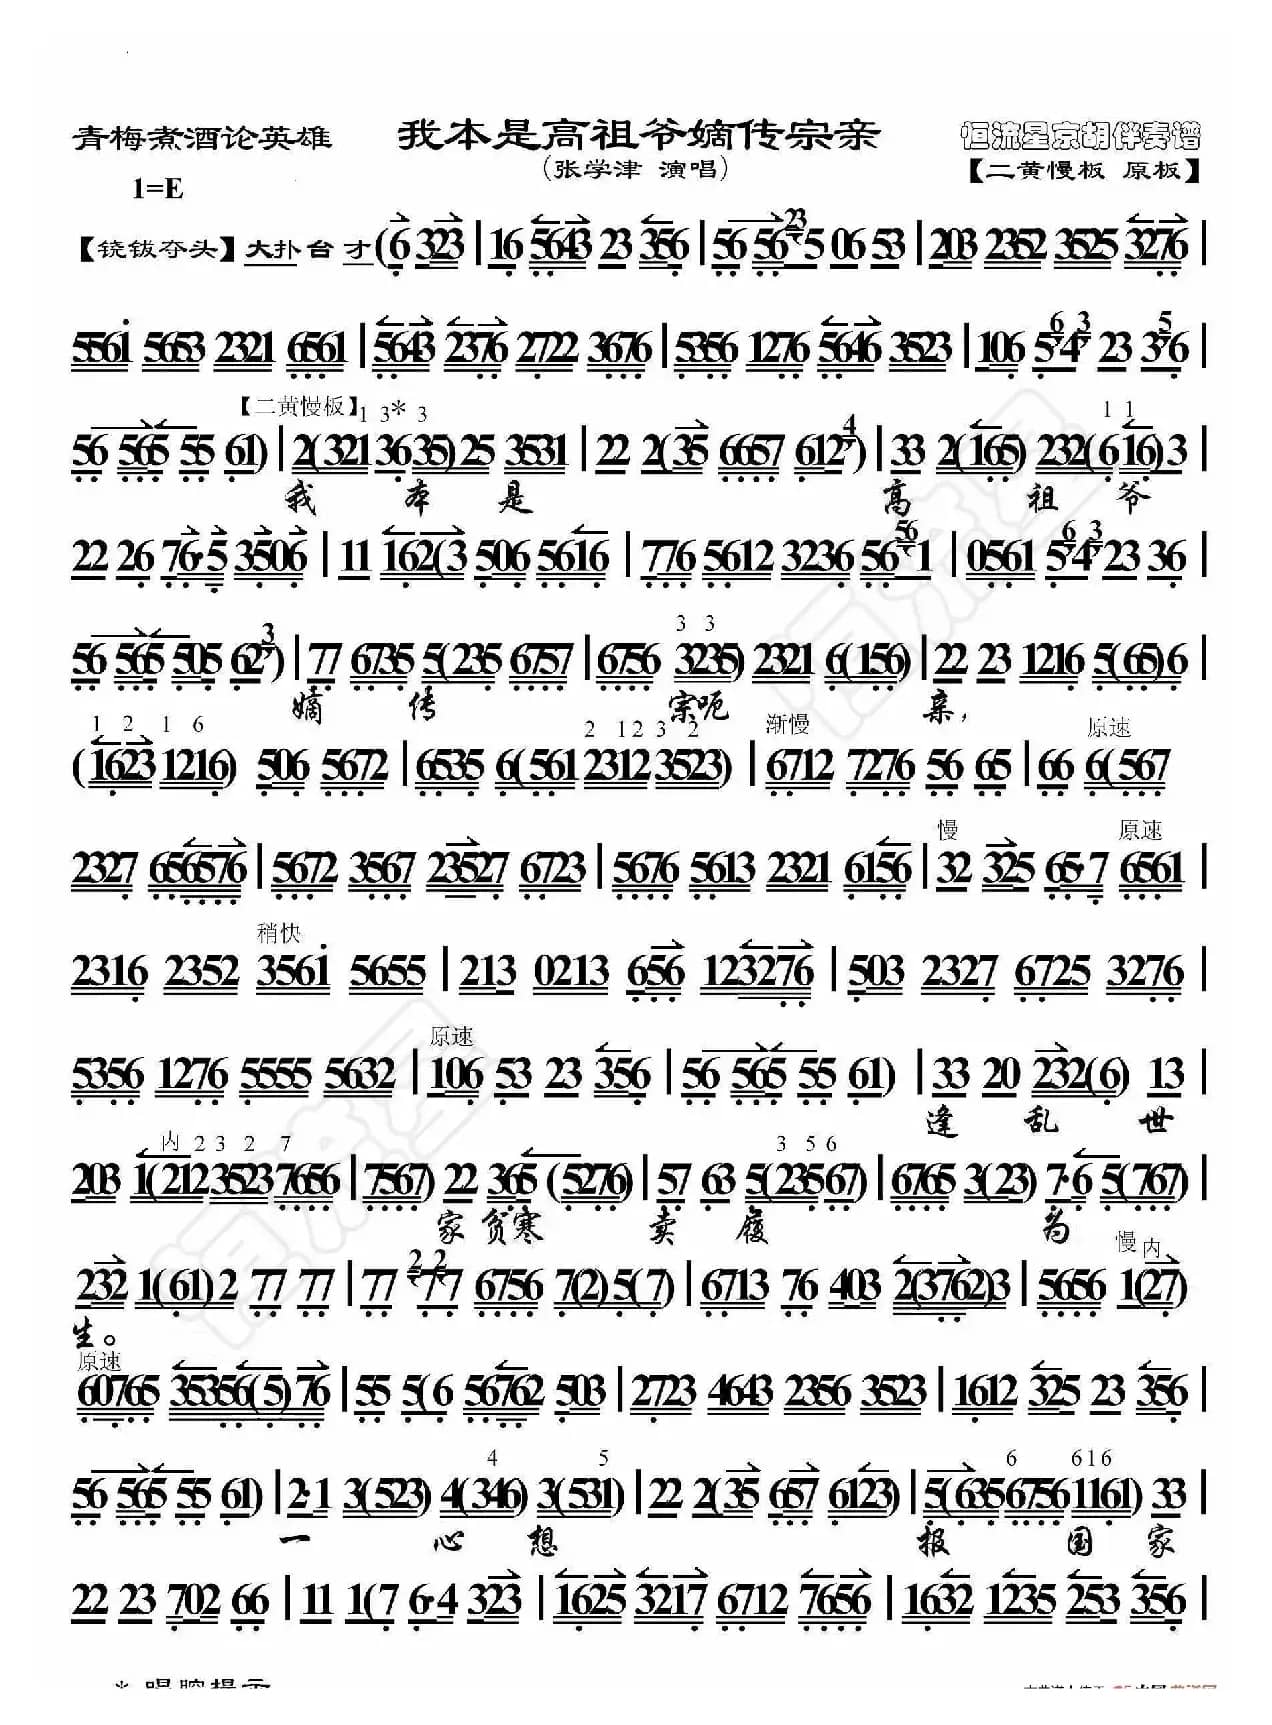 青梅煮酒论英雄 我本是高祖爷嫡传宗亲 恒流星京胡伴奏谱
(张学津 演唱) 【二黄慢板 原板】
1=E
【铙钹夺头】大扑台 才(6 323|16 5643 23 356|56 56 23 5 06 53|203 2352 3525 3276|
5561 5653 2321 6561|5643 2376 2722 3676|5356 1276 5646 3523|106 5·6 4·3 23 3·5 6|
【二黄慢板】 1 3* 3 4 1 1
56 565 55 61)|2(321 3635)25 3531|22 2(35 6657 612)|33 2(165) 232(6 16)3|
我 本 是 高 祖 爷
22 26 76·5 3506|11 162(3 506 5616|776 5612 3236 56 56 1|0561 5·6 4·3 23 36|
3 3 3
56 565 505 62)|77 6735 5(235 6757|6756 3235)2321 6(156)|22 23 1216 5(65)6|
嫡 传 宗呃 亲,
1 2 1 6 2 12 3 2 渐慢 原速
(1623 1216) 506 5672|6535 6(561 2312 3523)|6712 7276 56 65|66 6(567
慢 原速
2327 656576|5672 3567 23527 6723|5676 5613 2321 6156|32 325 65·7 6561|
稍快
2316 2352 3561 5655|213 0213 656 123276|503 2327 6725 3276|
原速
5356 1276 5555 5632|106 53 23 356|56 565 55 61)|33 20 232(6) 13|
逢 乱 世
内 2 3 2 7 3 5 6
203 1(212 3523 7656|7567) 22 365 (5276)|57 63 5(235 67)|6765 3(23) 7·6 5(767)|
家 贫寒 卖 履 为
2 2 慢 内
232 1(61)2 77 77|77 77 6756 7(2)5(7)|6713 76 403 2(3762)3|5656 1(27)
生。
原速
60765 35356(5)76|55 5(6 56762 503|2723 4643 2356 3523|1612 325 23 356|
4 5 6 616
56 565 55 61)|2·1 3(523) 4(346) 3(531)|22 2(35 657 6123)|5(635 6756 1161) 33|
一 心 想 报 国 家
22 23 702 66|11 1(7 6·4 323|1625 3217 6712 7656|1632 1235 253 356|